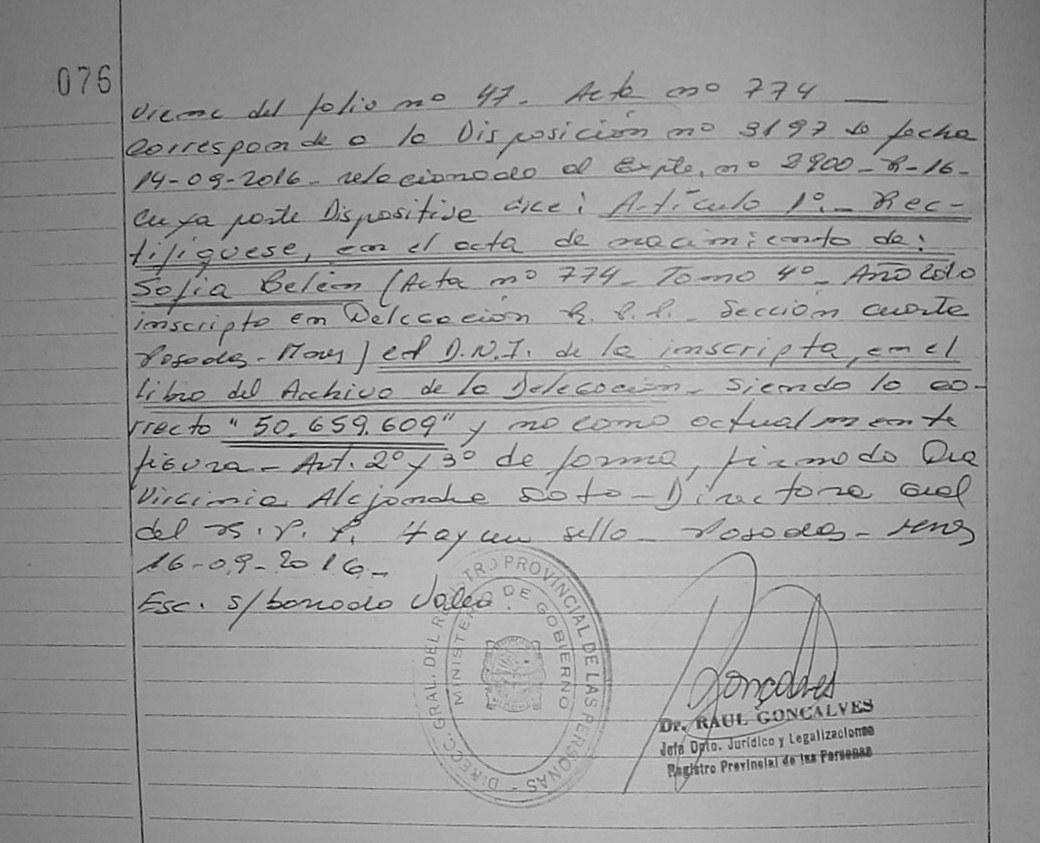 076
Viene del folio nº 47. Acta nº 774 —
Corresponde a la Disposición nº 3197 de fecha
14-09-2016 - relacionado al Expte. nº 2900-R-16-
Cuya parte Dispositiva dice: Artículo 1º - Rec-
tifiquese, en el acta de nacimiento de:
Sofia Belén (Acta nº 774 - Tomo 4º - Año 2010
inscripta en Delegación R.P.P. - Sección cuarta
Posadas - Mnes) el D.N.I. de la inscripta, en el
libro del Archivo de la Delegación - Siendo lo co-
rrecto "50.659.609" y no como actualmente
figura - Art. 2º y 3º de forma, firmado Dra
Virginia Alejandra Soto - Directora Gral
del R.P.P. Hay un sello - Posadas - Mnes
16-09-2016 -
Esc. s/borrado Vale.
DIRECC. GRAL. DEL REGISTRO PROVINCIAL DE LAS PERSONAS -
MINISTERIO DE GOBIERNO
Goncalves
Dr. RAUL GONCALVES
Jefe Dpto. Jurídico y Legalizaciones
Registro Provincial de las Personas